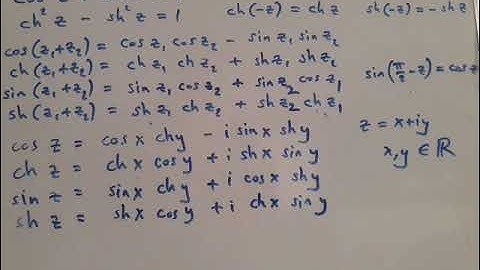 ch² z - sh² z = 1 ch(-z) = ch z sh(-z) = -sh z
cos(z₁+z₂) = cos z₁ cos z₂ - sin z₁ sin z₂
ch(z₁+z₂) = ch z₁ ch z₂ + sh z₁ sh z₂
sin(z₁+z₂) = sin z₁ cos z₂ + sin z₂ cos z₁ sin(π/2 - z) = cos z
sh(z₁+z₂) = sh z₁ ch z₂ + sh z₂ ch z₁
cos z = cos x ch y - i sin x sh y z = x+iy
ch z = ch x cos y + i sh x sin y x,y ∈ ℝ
sin z = sin x ch y + i cos x sh y
sh z = sh x cos y + i ch x sin y